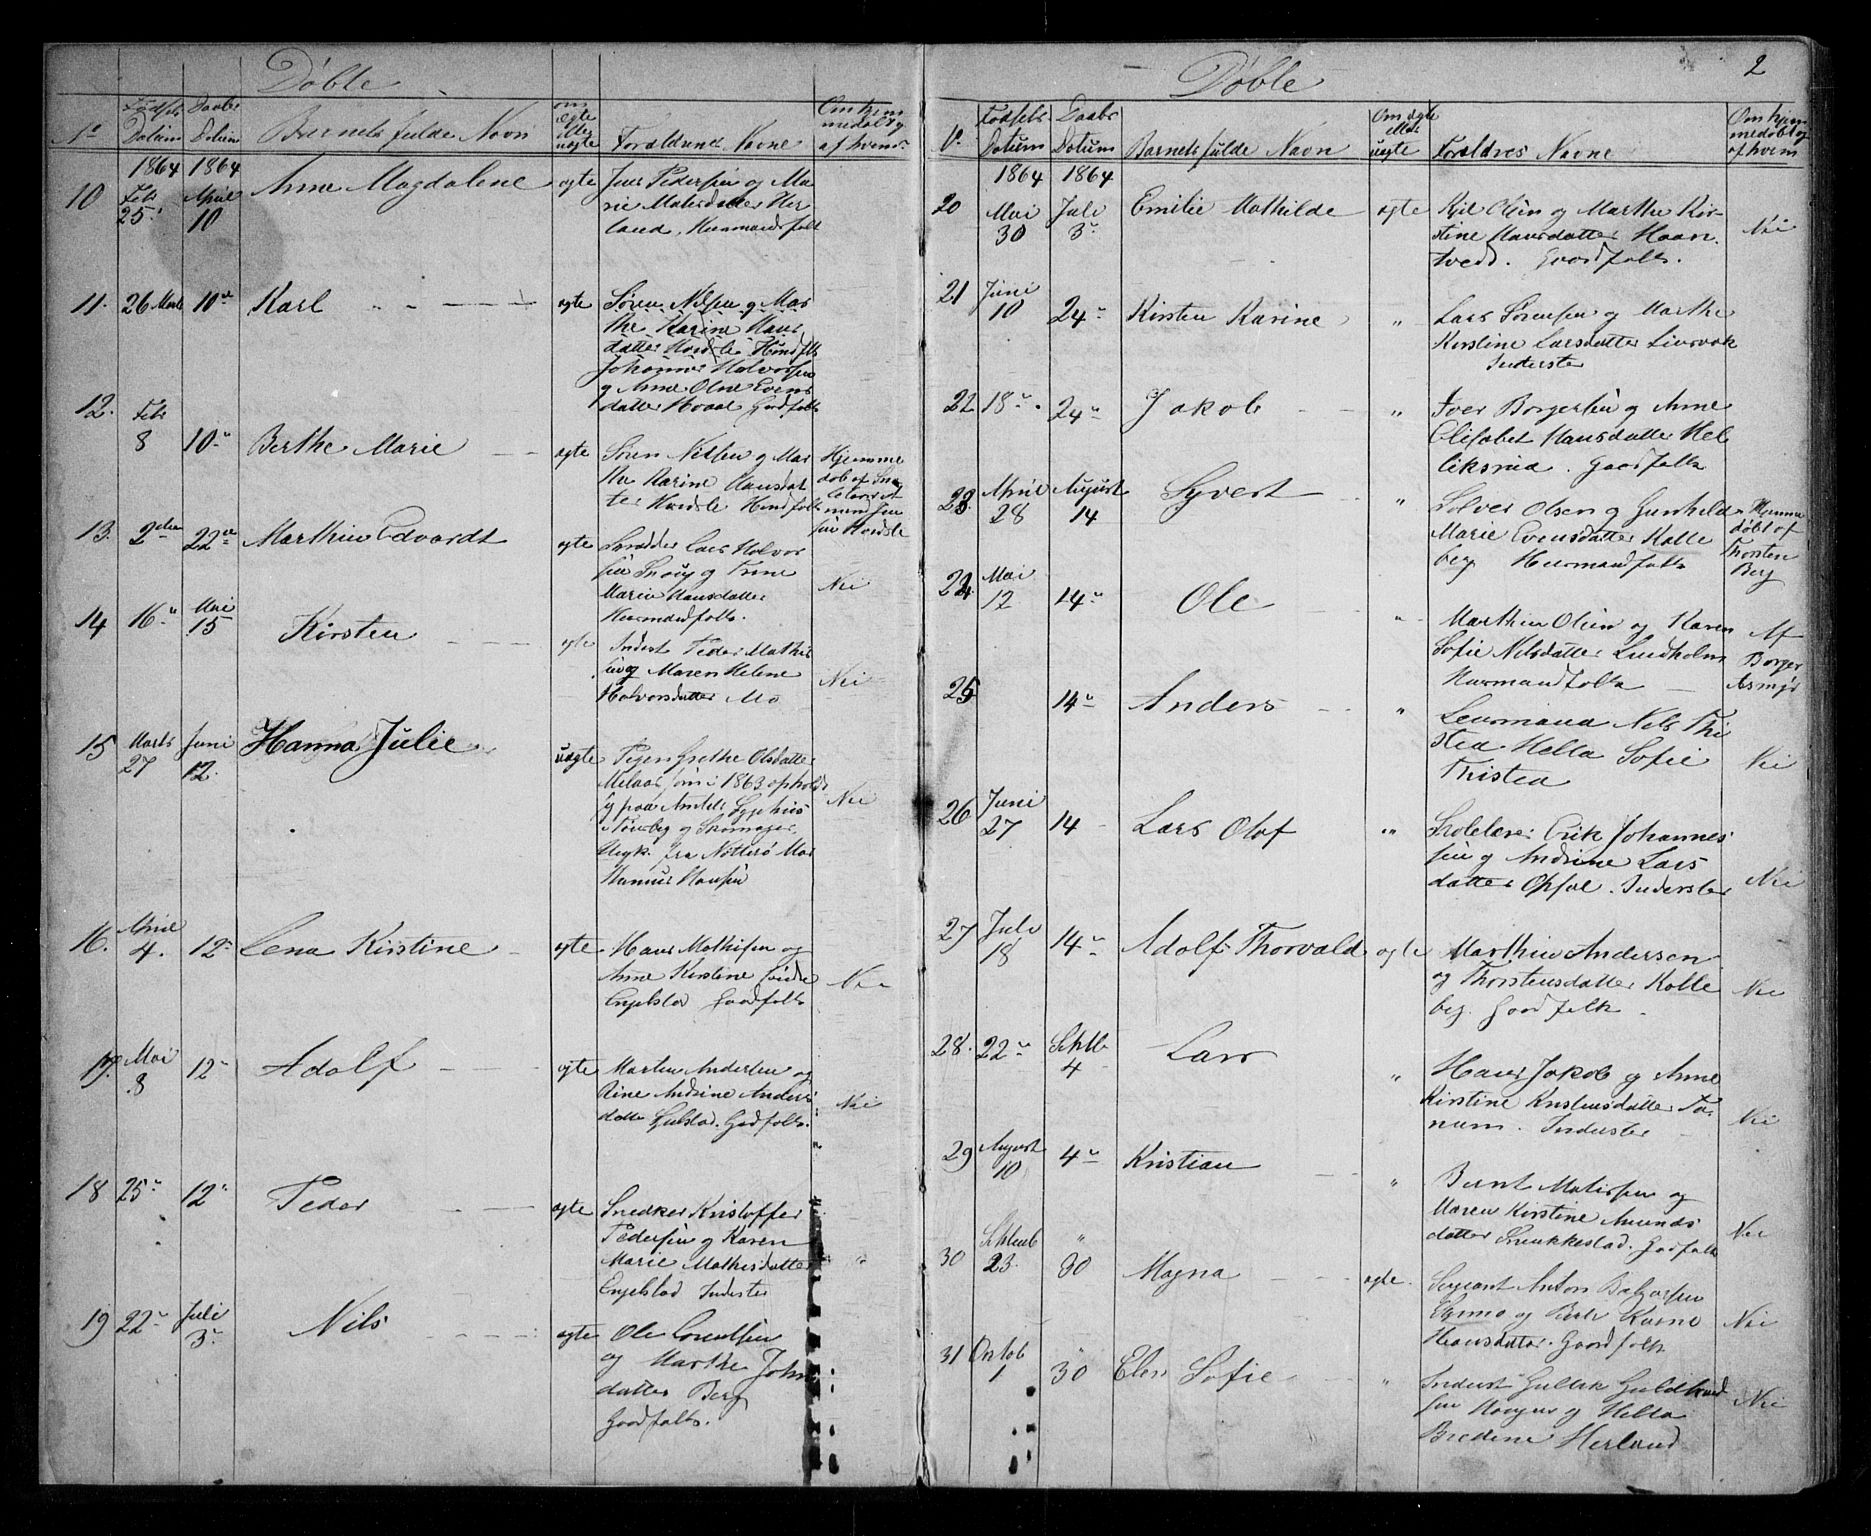 Døbte
No
Fødsels Datum
Daabs Datum
Barnets fulde Navn
om ægte eller uægte
Forældrenes Navne
Om hjemmedøbt og af hvem
1864 1864
10 Febr 25 April 10 Anne Magdalene ægte Jens Pedersen og Ma
rie Matisdatter Her
land, Huusmandsfolk
11. 26 Marts 10de Karl ægte Søren Nilsen og Mar
the Karine Hans
datter Hordsle Huusfolk
Johannes Halvorsen
og Anne Olne Evens
datter Hoval Gaardfolk
12. Febr 8 10 " Berthe Marie ægte Søren Nilsen og Mar
the Karine Hansdat
ter Hordsle Huusfolk
Hjemme
døb af
13. 2den 22de Marthin Edvardt ægte Skrædder Lars Halvor
sen Snoug og Trine
Marie Hansdatter
Huusmandfolk. Nei
14 16 " Mai 15 Kirsten ægte Inderst Peder Mathis
sen og Maren Helene
Halvorsdatter Mo Nei
15 Marts 27 Juni 12. Hanna Julie uægte Pigen Grethe Olsdatter
Melaas som i 1863 opholdt
sig paa Amtets Sygehus
i Tønsberg og Skomager
Ungk. fra Nøtterø Mar
thinius Hansen Nei
16. April 4. 12 " Lena Kirstine ægte Hans Mathisen og
Anne Kirstine
Engelstad Gaardfolk Nei
17. Mai 8 12 " Adolf ægte Morten Andersen og
Rine Andrine Anders
datter Gulstad. Gaardfolk. Nei
18 25 " 12 " Peder ægte Snedker Kristoffer
Pedersen og Karen
Marie Mathisdatter
Engelstad Inderster "
19 22 " Juli 3 " Nils ægte Ole Lorentsen
og Marthe John
datter Berg
Gaardfolk.
2
Døbte
No.
Fødsels Datum
Daabs Datum
Barnets fulde Navn
Om ægte eller uægte
Forældres Navne
Om hjem
medøbt og
af hvem
1864 1864
20 Mai 30 Juli 3 " Emilie Mathilde ægte Kjel Olsen og Marthe Kir-
stine Hansdatter Haan
tvedt. Gaardfolk. Nei
21 Juni 10 24 " Kirsten Karine " Lars Sørensen og Marthe
Kirstine Larsdatter
Inderster
22 18 " 24 " Jakob " Iver Borgersen og Anne
Elisabet Hansdatter Hel
liksrud. Gaardfolk
23 April 28 August 14 Syvert " Solver Olsen og Gunhild
Marie Evensdatter Kolle
berg Huusmandfolk
Hjemme
døbt af
Thorsten
Berg
24. Mai 12 14 " Ole " Marthin Olsen og Karen
Sofie Nilsdatter Lindholm
Huusmandfolk
Af
Borger
Asmyr
25 14 " Anders " Lensmand Nils Thi
sted Helta Sofie
Thisted Nei
26 Juni 27 14 Lars Olof " Skolelærer Erik Johannes
sen og Andrine Lars
datter Opsal. Inderster Nei
27 Juli 18 14 " Adolf Thorvald ægte Marthin Andersen
og Thorstensdatter Kolle
berg. Gaardfolk Nei
28. 22 " Septb 4 Lars " Hans Jakob og Anne
Kirstine Kristensdatter Ta
num. Inderster Nei
29 August 10 4 " Kristian " Bernt Matissen og
Maren Kirstine Amunds
datter Snukkestad. Gaardfolk Nei
30 Septemb 23. " 30 Magna ægte. Sergeant Anton Balzersen
og Karine
Hansdatter. Gaardfolk Nei
31 October 1 " 30 Elen Sofie " Inderst Gullik Guldbrand
sen og Helta
Bredine Herland Nei